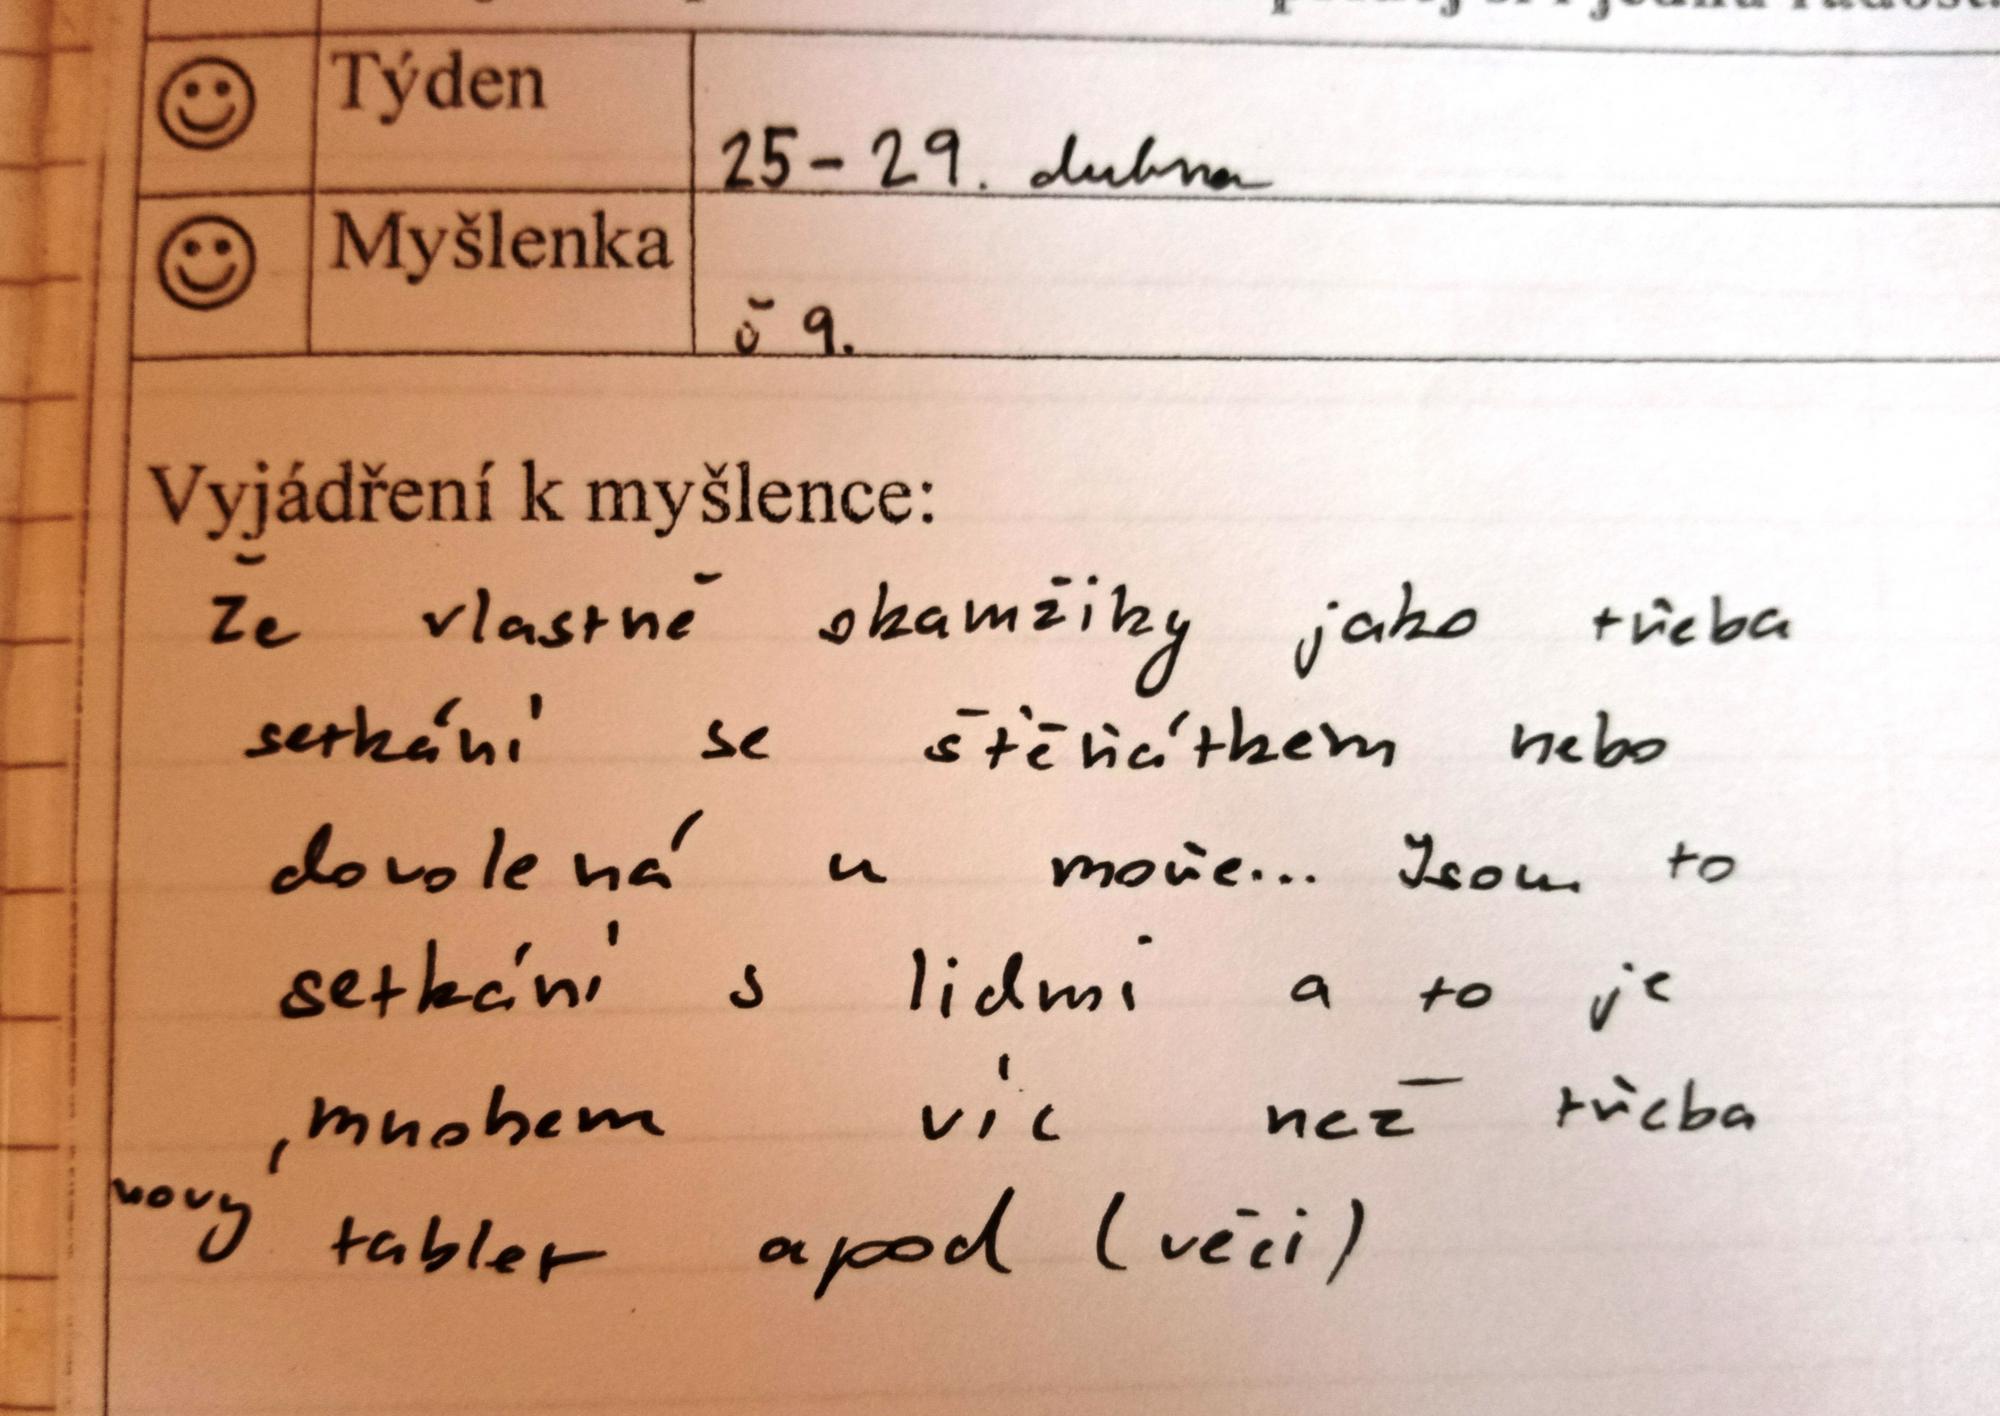 Týden 25-29. dubna
Myšlenka č 9.
Vyjádření k myšlence:
Že vlastně okamžiky jako třeba
setkání se štěňátkem nebo
dovolená u moře... Jsou to
setkání s lidmi a to je
, mnohem víc než třeba
nový tablet apod (věci)